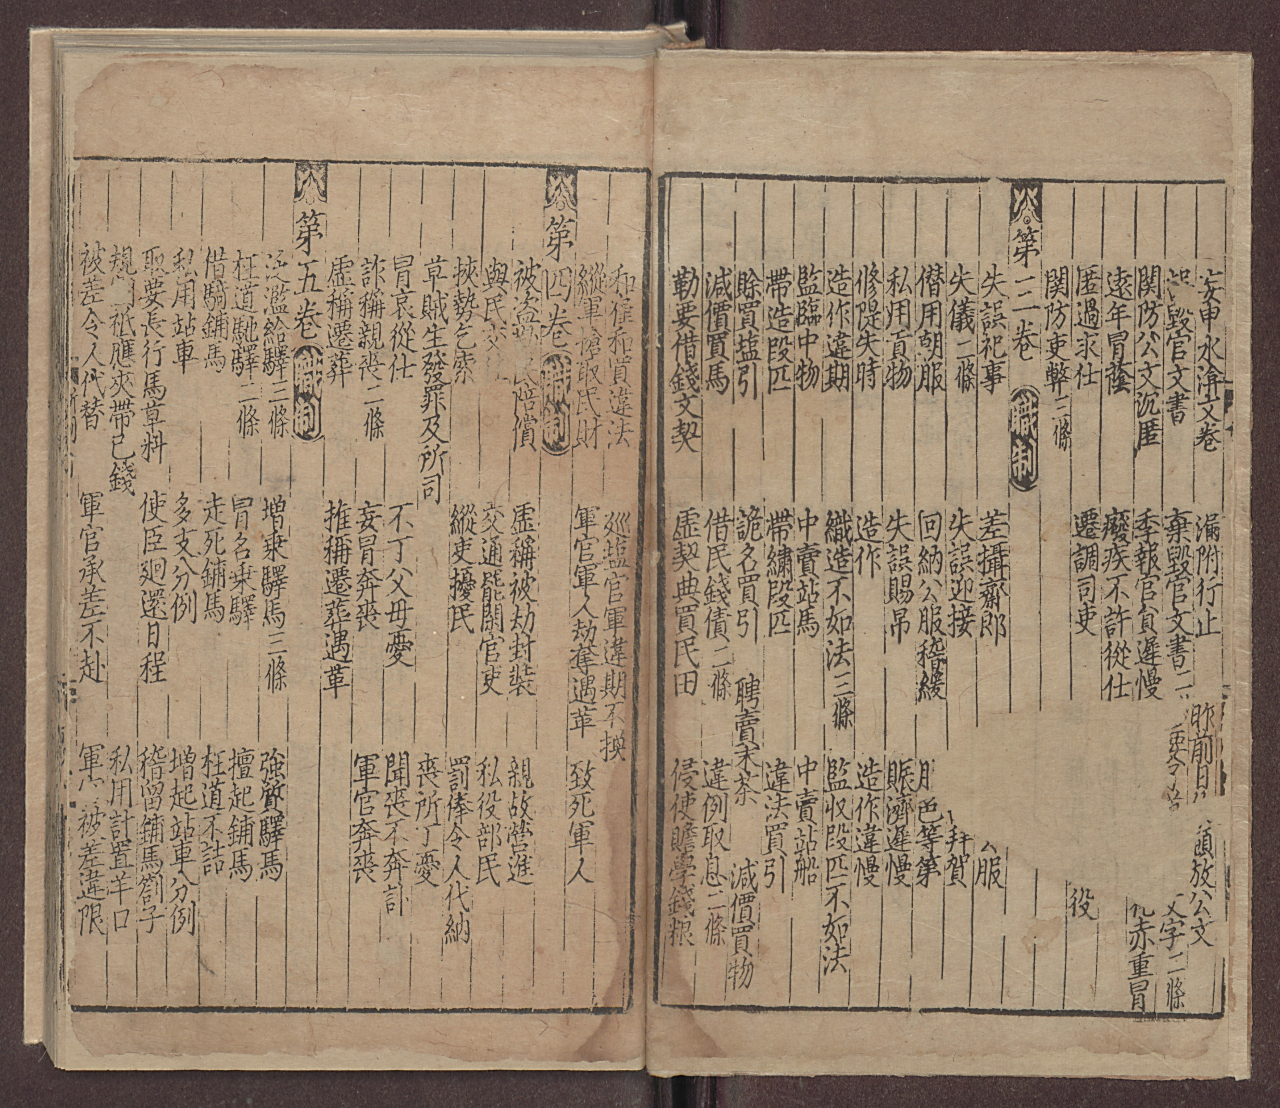 妄申水渰文卷 漏附行止 昨前日 須放公文
毀官文書 棄毀官文書二 文字二條
関防公文沉匿 季報官負遲慢 赤重冒
遠年冒蔭 廢疾不許從仕
匿過求仕 遷調司吏 役
関防吏弊三條
第三卷 職制
失誤祀事 差攝齋郎 公服
失儀二條 失誤迎接 拜賀
僣用朝服 回納公服稽緩 服色等第
私用貢物 失誤賜帛 賑濟遲慢
修隄失時 造作 造作違慢
造作違期 織造不如法三條 監収段匹不如法
監臨中物 中賣站馬 中賣站船
帶造段匹 帶繡段匹 違法買引
賒買塩引 詭名買引 聘賣末茶 減價買物
減價買馬 借民錢債二條 違例取息二條
勒要借錢文契 虚契典買民田 侵使贍學錢粮
和雇和買違法 廵塩官軍違期不換
縱軍搶取民財 軍官軍人劫奪遇革 致死軍人
第四卷 職制
被盗 陪償 虚稱被劫封裝 親故營進
與民交 交通罷閑官吏 私役部民
挾勢乞索 縱吏擾民 罰俸令人代納
草賊生發罪及所司 丧所丁憂
冒哀從仕 不丁父母憂 聞丧不奔訃
詐稱親丧二條 妄冒奔丧 軍官奔丧
虚稱遷葬 推稱遷葬遇革
第五卷 職制
泛濫給驛三條 增乗驛馬三條 強質驛馬
枉道馳驛二條 冒名乗驛 擅起鋪馬
借騎鋪馬 走死鋪馬 枉道不詰
私用站車 多支分例 增起站車分例
取要長行馬草料 使臣廻還日程 稽留鋪馬劄子
規 祗應夾帶已錢 私用計置羊口
被差令人代替 軍官承差不赴 軍 被差違限